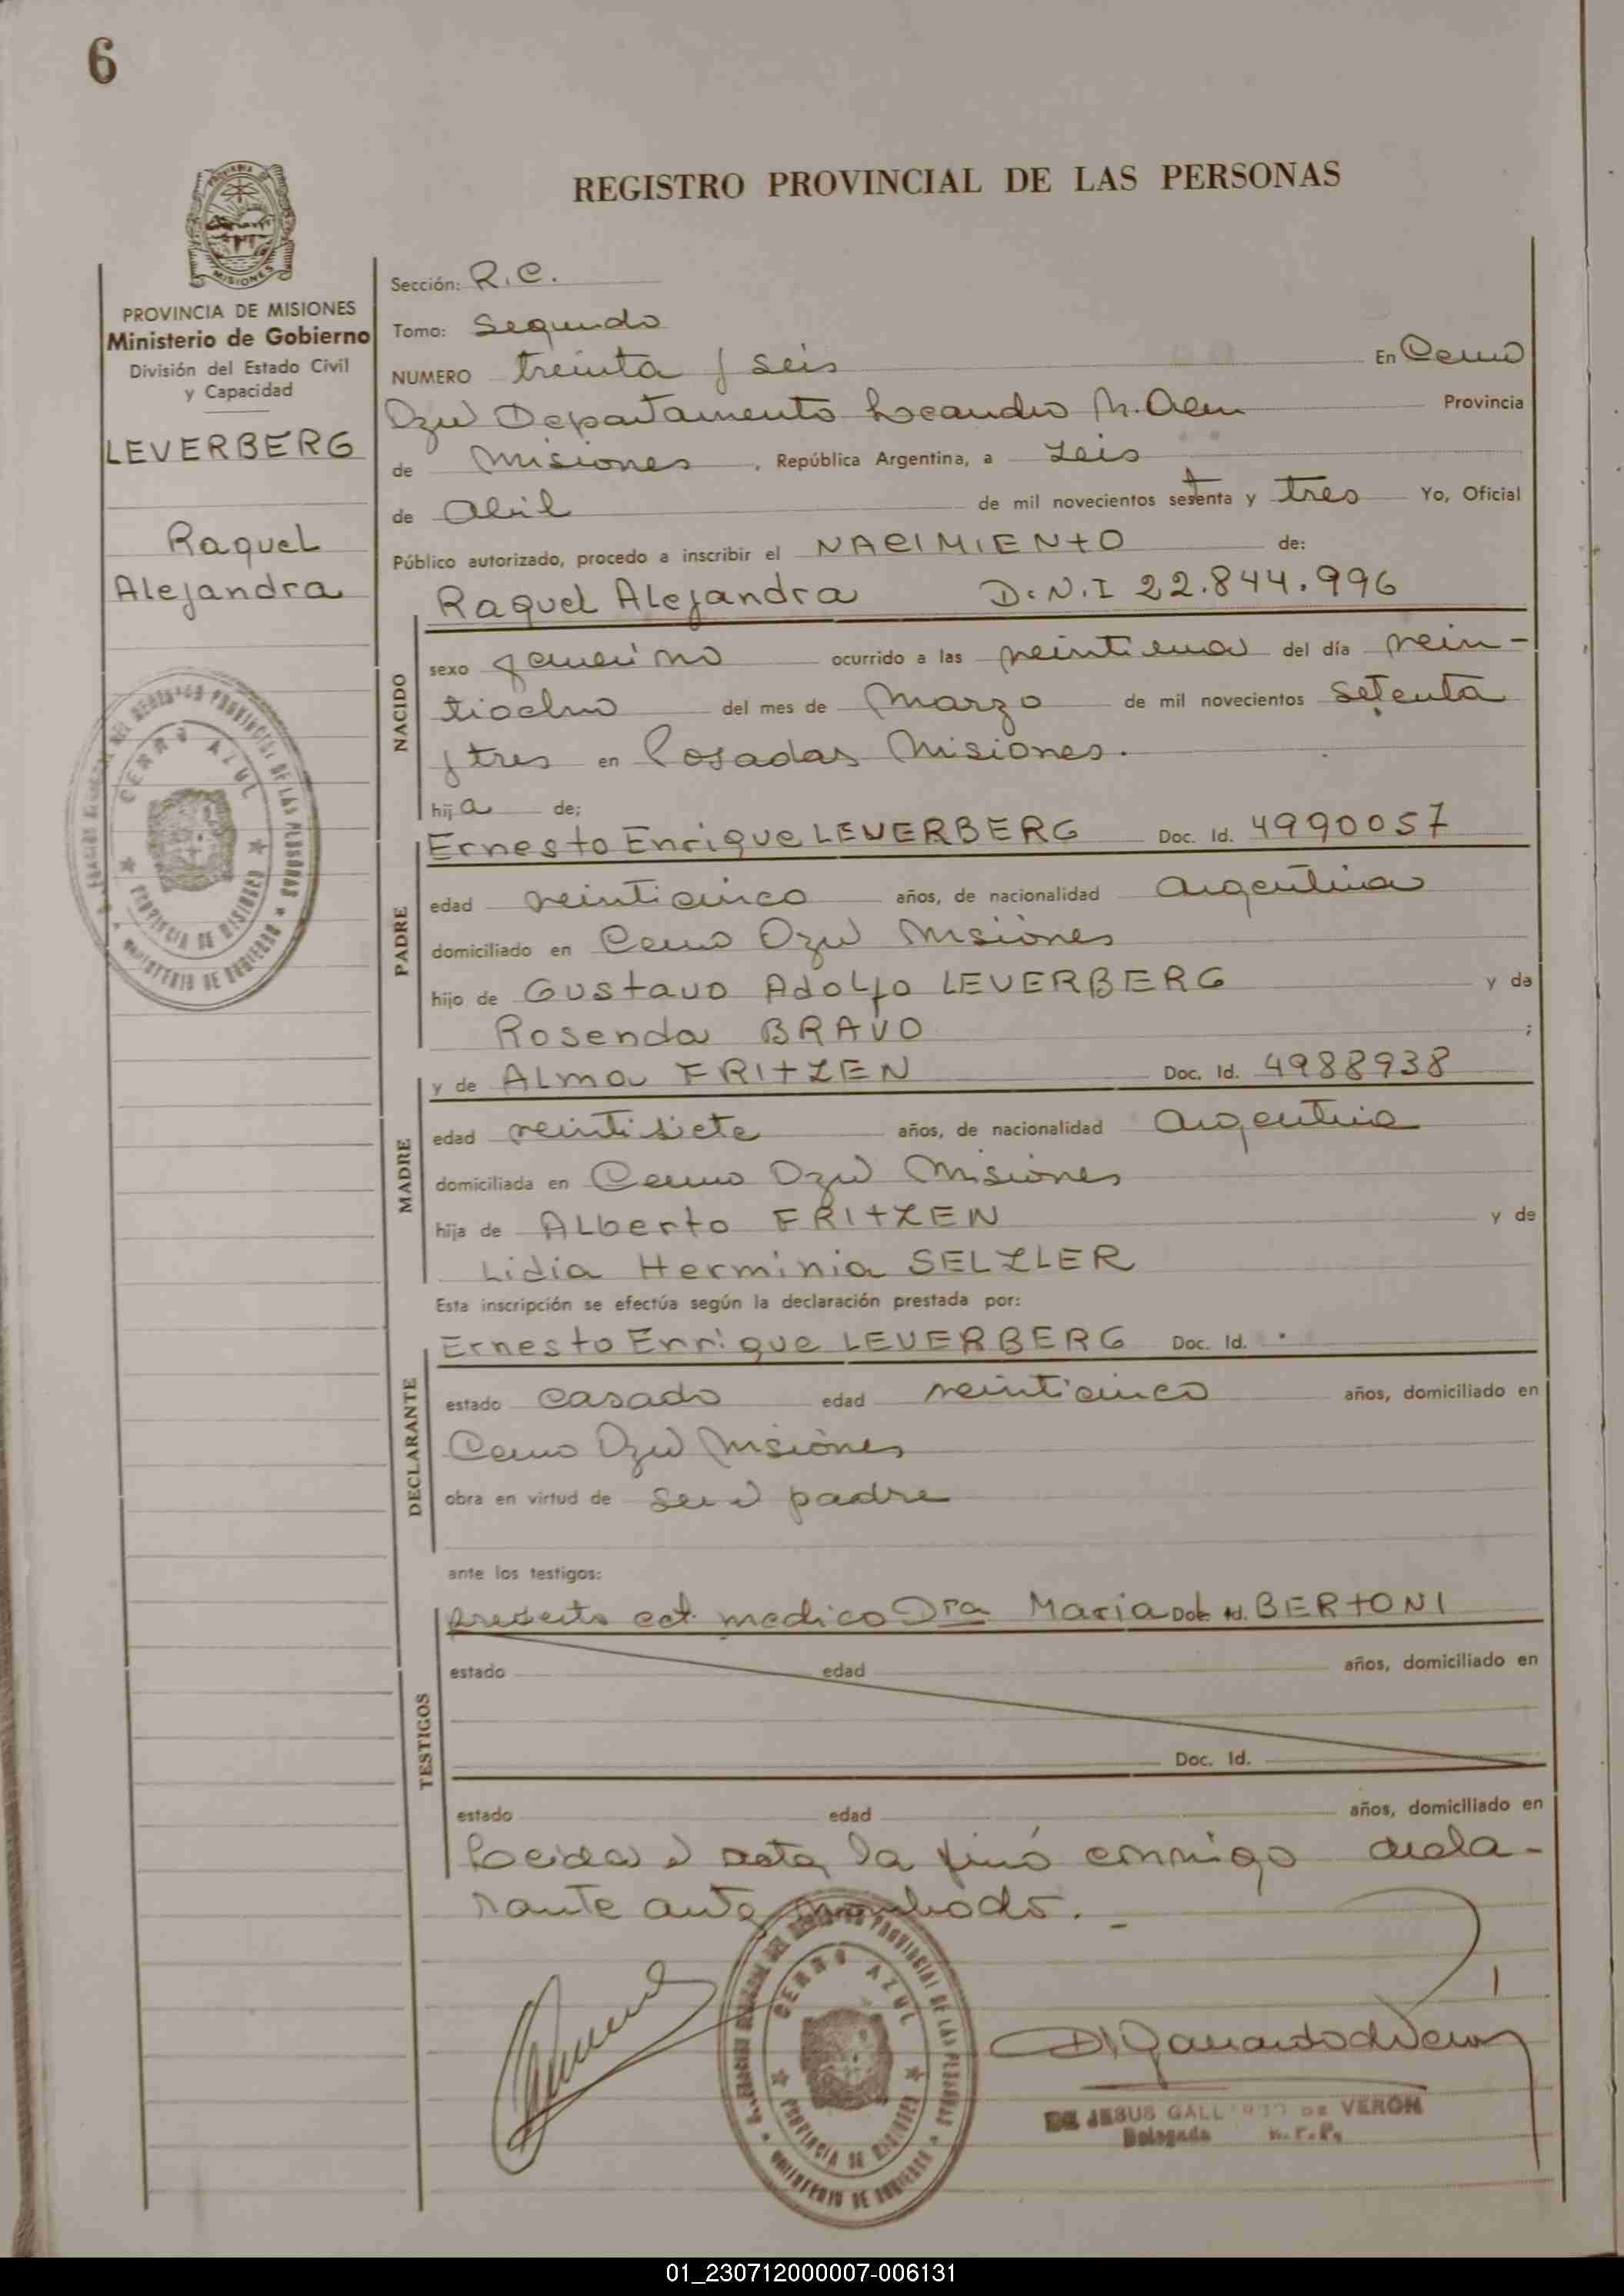 6
REGISTRO PROVINCIAL DE LAS PERSONAS
MISIONES
PROVINCIA DE MISIONES
Ministerio de Gobierno
División del Estado Civil
y Capacidad
LEVERBERG
Raquel
Alejandra
CERRO AZUL
PROVINCIA DE MISIONES
MINISTERIO DE GOBIERNO
Sección: R.C.
Tomo: Segundo
NUMERO treinta y seis En Cerro
Azul Departamento Leandro N. Alem Provincia
de Misiones, República Argentina, a seis
de abril de mil novecientos setenta y tres Yo, Oficial
Público autorizado, procedo a inscribir el NACIMIENTO de:
Raquel Alejandra D.N.I 22.844.996
NACIDO
sexo femenino ocurrido a las veintiuna del día vein-
tiocho del mes de Marzo de mil novecientos setenta
y tres en Posadas Misiones.
hija de;
PADRE
Ernesto Enrique LEVERBERG Doc. Id. 4990057
edad veinticinco años, de nacionalidad argentina
domiciliado en Cerro Azul Misiones
hijo de Gustavo Adolfo LEVERBERG y de
Rosenda BRAVO ;
MADRE
y de Alma FRITZEN Doc. Id. 4988938
edad veintisiete años, de nacionalidad argentina
domiciliada en Cerro Azul Misiones
hija de Alberto FRITZEN y de
Lidia Herminia SELZLER
Esta inscripción se efectúa según la declaración prestada por:
DECLARANTE
Ernesto Enrique LEVERBERG Doc. Id.
estado casado edad veinticinco años, domiciliado en
Cerro Azul Misiones
obra en virtud de ser el padre
ante los testigos:
TESTIGOS
presento cet. medico Dra Maria Doc. Id. BERTONI
estado edad años, domiciliado en
Doc. Id.
estado edad años, domiciliado en
Leida el acta, la firmó conmigo decla-
rante ante nombrado.
CERRO AZUL
PROVINCIA DE MISIONES
MINISTERIO DE GOBIERNO
DE JESUS GALLARDO DE VERON
Delegada R.P.P.
01_230712000007-006131